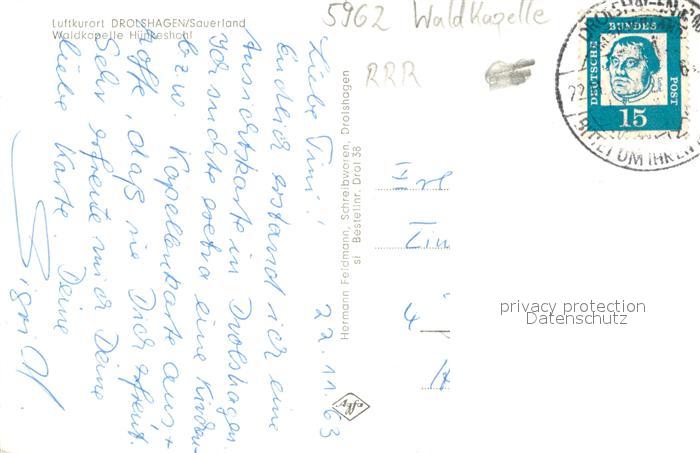 Luftkurort DROLSHAGEN/Sauerland
Waldkapelle Hünkeshohl
5962 Waldkapelle
RRR
DEUTSCHE BUNDES POST
15
22.11.63
Liebe Tini!
Endlich erstand ich eine
Ansichtskarte in Drolshagen.
Ich suchte extra eine Kirchen-
bzw. Kapellenkarte aus, +
hoffe, daß sie Dich erfreut.
Sehr erfreute mich Deine
liebe Karte. Deine
Sigrid
Hermann Feldmann, Schreibwaren, Drolshagen
si Bestellnr. Drol 38
Agfa
Frl
4
privacy protection
Datenschutz